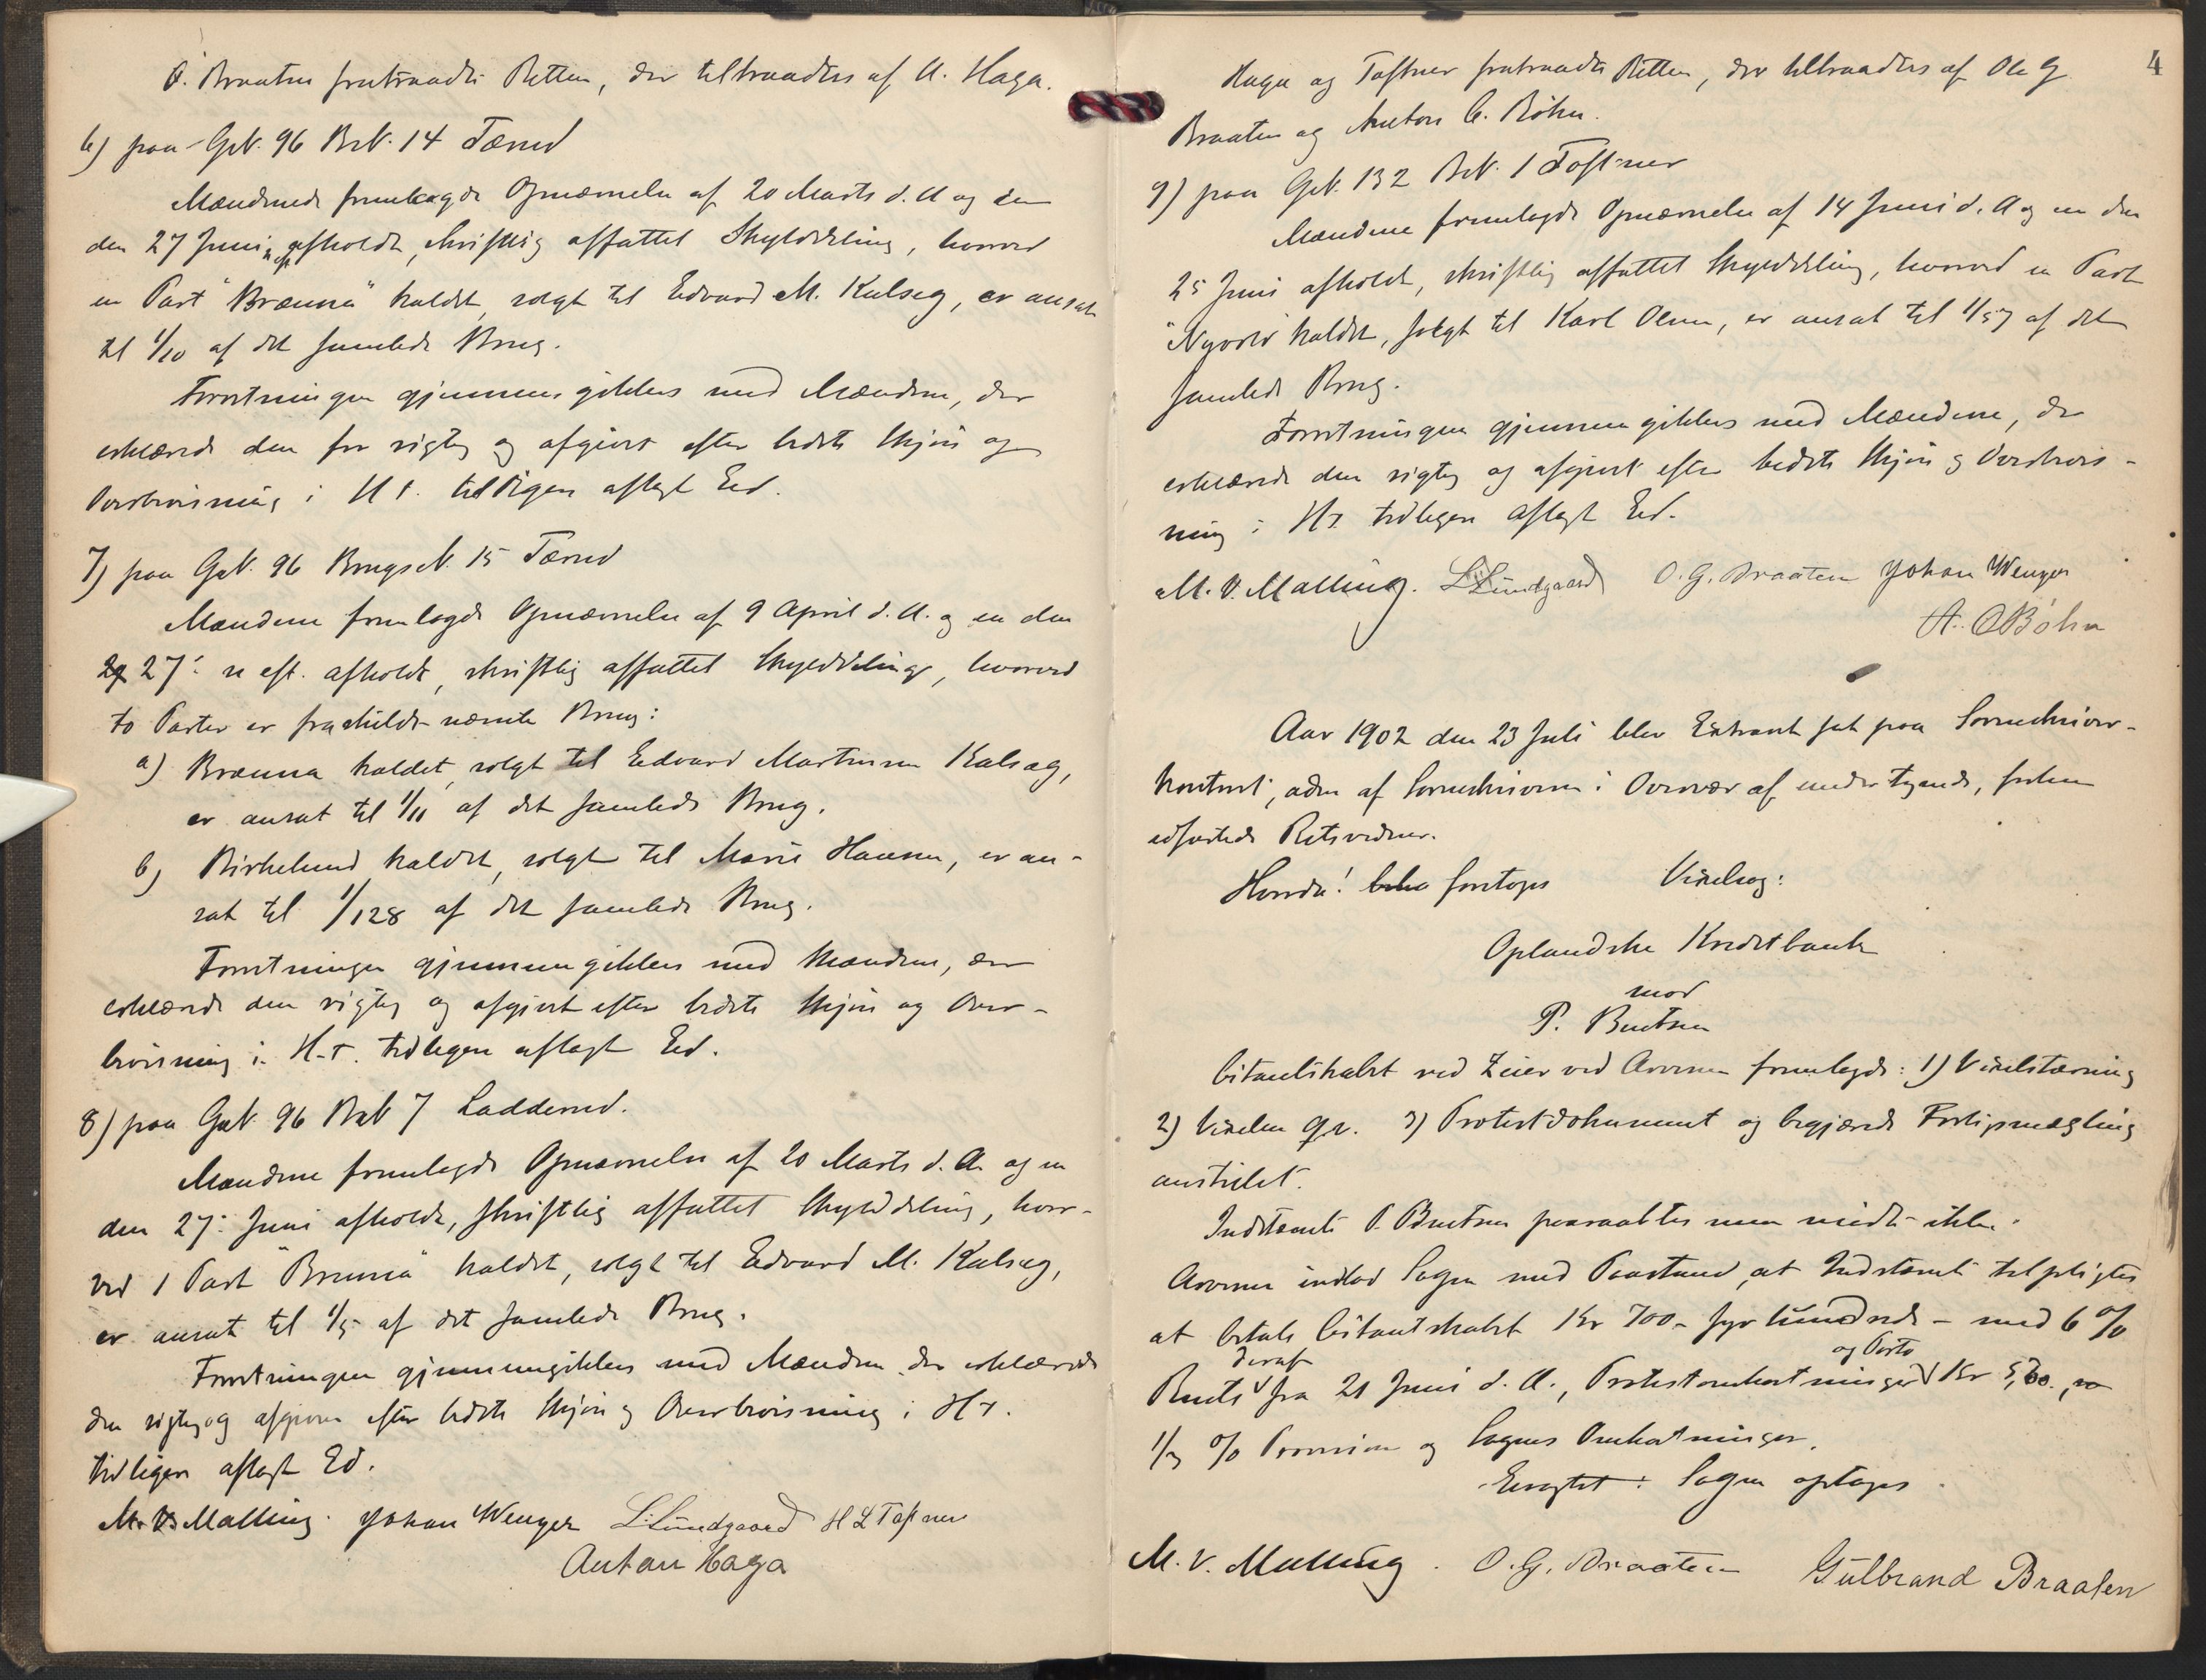 O. Braaten fratraadte Retten, der tiltraadtes af A. Haga.
6) paa Gr.N. 96 Br.N. 14 Tærud
Mændende fremlagde Opnævnelse af 20 Marts d. A og den
den 27 Juni afholdt, skriftlig affattet Skylddeling, hvorved
en Part "Brænna" kaldet, solgt til Edvard M. Kulseg, er ansat
til 1/10 af det samlede Brug.
Forretningen gjennemgikkes med Mændene, der
erklærede den for rigtig og afgivet efter bedste Skjøn og
Overbevisning i H.t. tidligere aflagt Ed.
7) paa G.N. 96 Brugs N. 15 Tærud
Mændene fremlagde Opnævnelse af 9 April d. A. og en den
27' n. eft. afholdt, skriftlig affattet Skylddeling, hvorved
to Parter er fraskildt nævnte Brug:
a) Brænna kaldet, solgt til Edvard Martinsen Kulseg,
er ansat til 1/11 af det samlede Brug.
b) Birkelund kaldet, solgt til Marie Hansen, er an-
sat til 1/128 af det samlede Brug.
Forretningen gjennemgikkes med Mændene, der
erklærede den rigtig og afgivet efter bedste Skjøn og Over-
bevisning i H.t. tidligere aflagt Ed.
8) paa G.N. 96 B.N. 7 Ladderud.
Mændene fremlagde Opnævnelse af 20 Marts d. A. og en
den 27' Juni afholdt, skriftlig affattet Skylddeling, hvor-
ved 1 Part "Brænna" kaldet, solgt til Edvard M. Kulseg,
er ansat til 1/5 af det samlede Brug.
Forretningen gjennemgikkes med Mændene der erklærede
den rigtig og afgiven efter bedste Skjøn og Overbevisning i H.t.
tidligere aflagt Ed.
M. V. Malling. Johan Wenger L. Lundgaard H L Tofsner
Anton Haga
4
Haga og Tofsner fratraadte Retten, der tiltraadtes af Ole G
Braaten og Anton C. Bøhn.
9) paa G.N. 132 B.N. 1 Tofsner
Mændene fremlagde Opnævnelse af 14 Juni d. A og en den
25 Juni afholdt, skriftlig affattet Skylddeling, hvorved en Part
"Nyvold" kaldet, solgt til Karl Olsen, er ansat til 1/57 af det
samlede Brug.
Forretningen gjennemgikkes med Mændene, der
erklærede den rigtig og afgivet efter bedste Skjøn og Overbevis-
ning i H.t. tidligere aflagt Ed.
M. V. Malling. L. Lundgaard O. G. Braaten Johan Wenger
A. C Bøhn
Aar 1902 den 23 Juli blev Extraret sat paa Sorenskriver-
kontoret, adm. af Sorenskriveren i Overvær af undertegnede,
edfæstede Retsvidner.
Hvorda! foretoges Vexelsag:
Oplandske Kreditbank
mod
P. Berntsen
Citantskabet ved Zeier ved Arvesen fremlagde: 1) Vexelstævning
2) Vexelen qv. 3) Protestdokument og begjærede Forligsmægling
anstillet.
Indstævnte P. Berntsen paaraabtes men mødte ikke.
Arvesen indlod Sagen med Paastand, at Indstævnte tilpligtes
at betale Citantskabet Kr 700 - syv hundrede - med 6 %
Rente deraf fra 21 Juni d. A., Protestomkostninger og Porto Kr 5,60,
1/3 % Provision og Sagens Omkostninger.
Eragtet: Sagen optages
M. V. Malling. O. G. Braaten Gulbrand Braaten